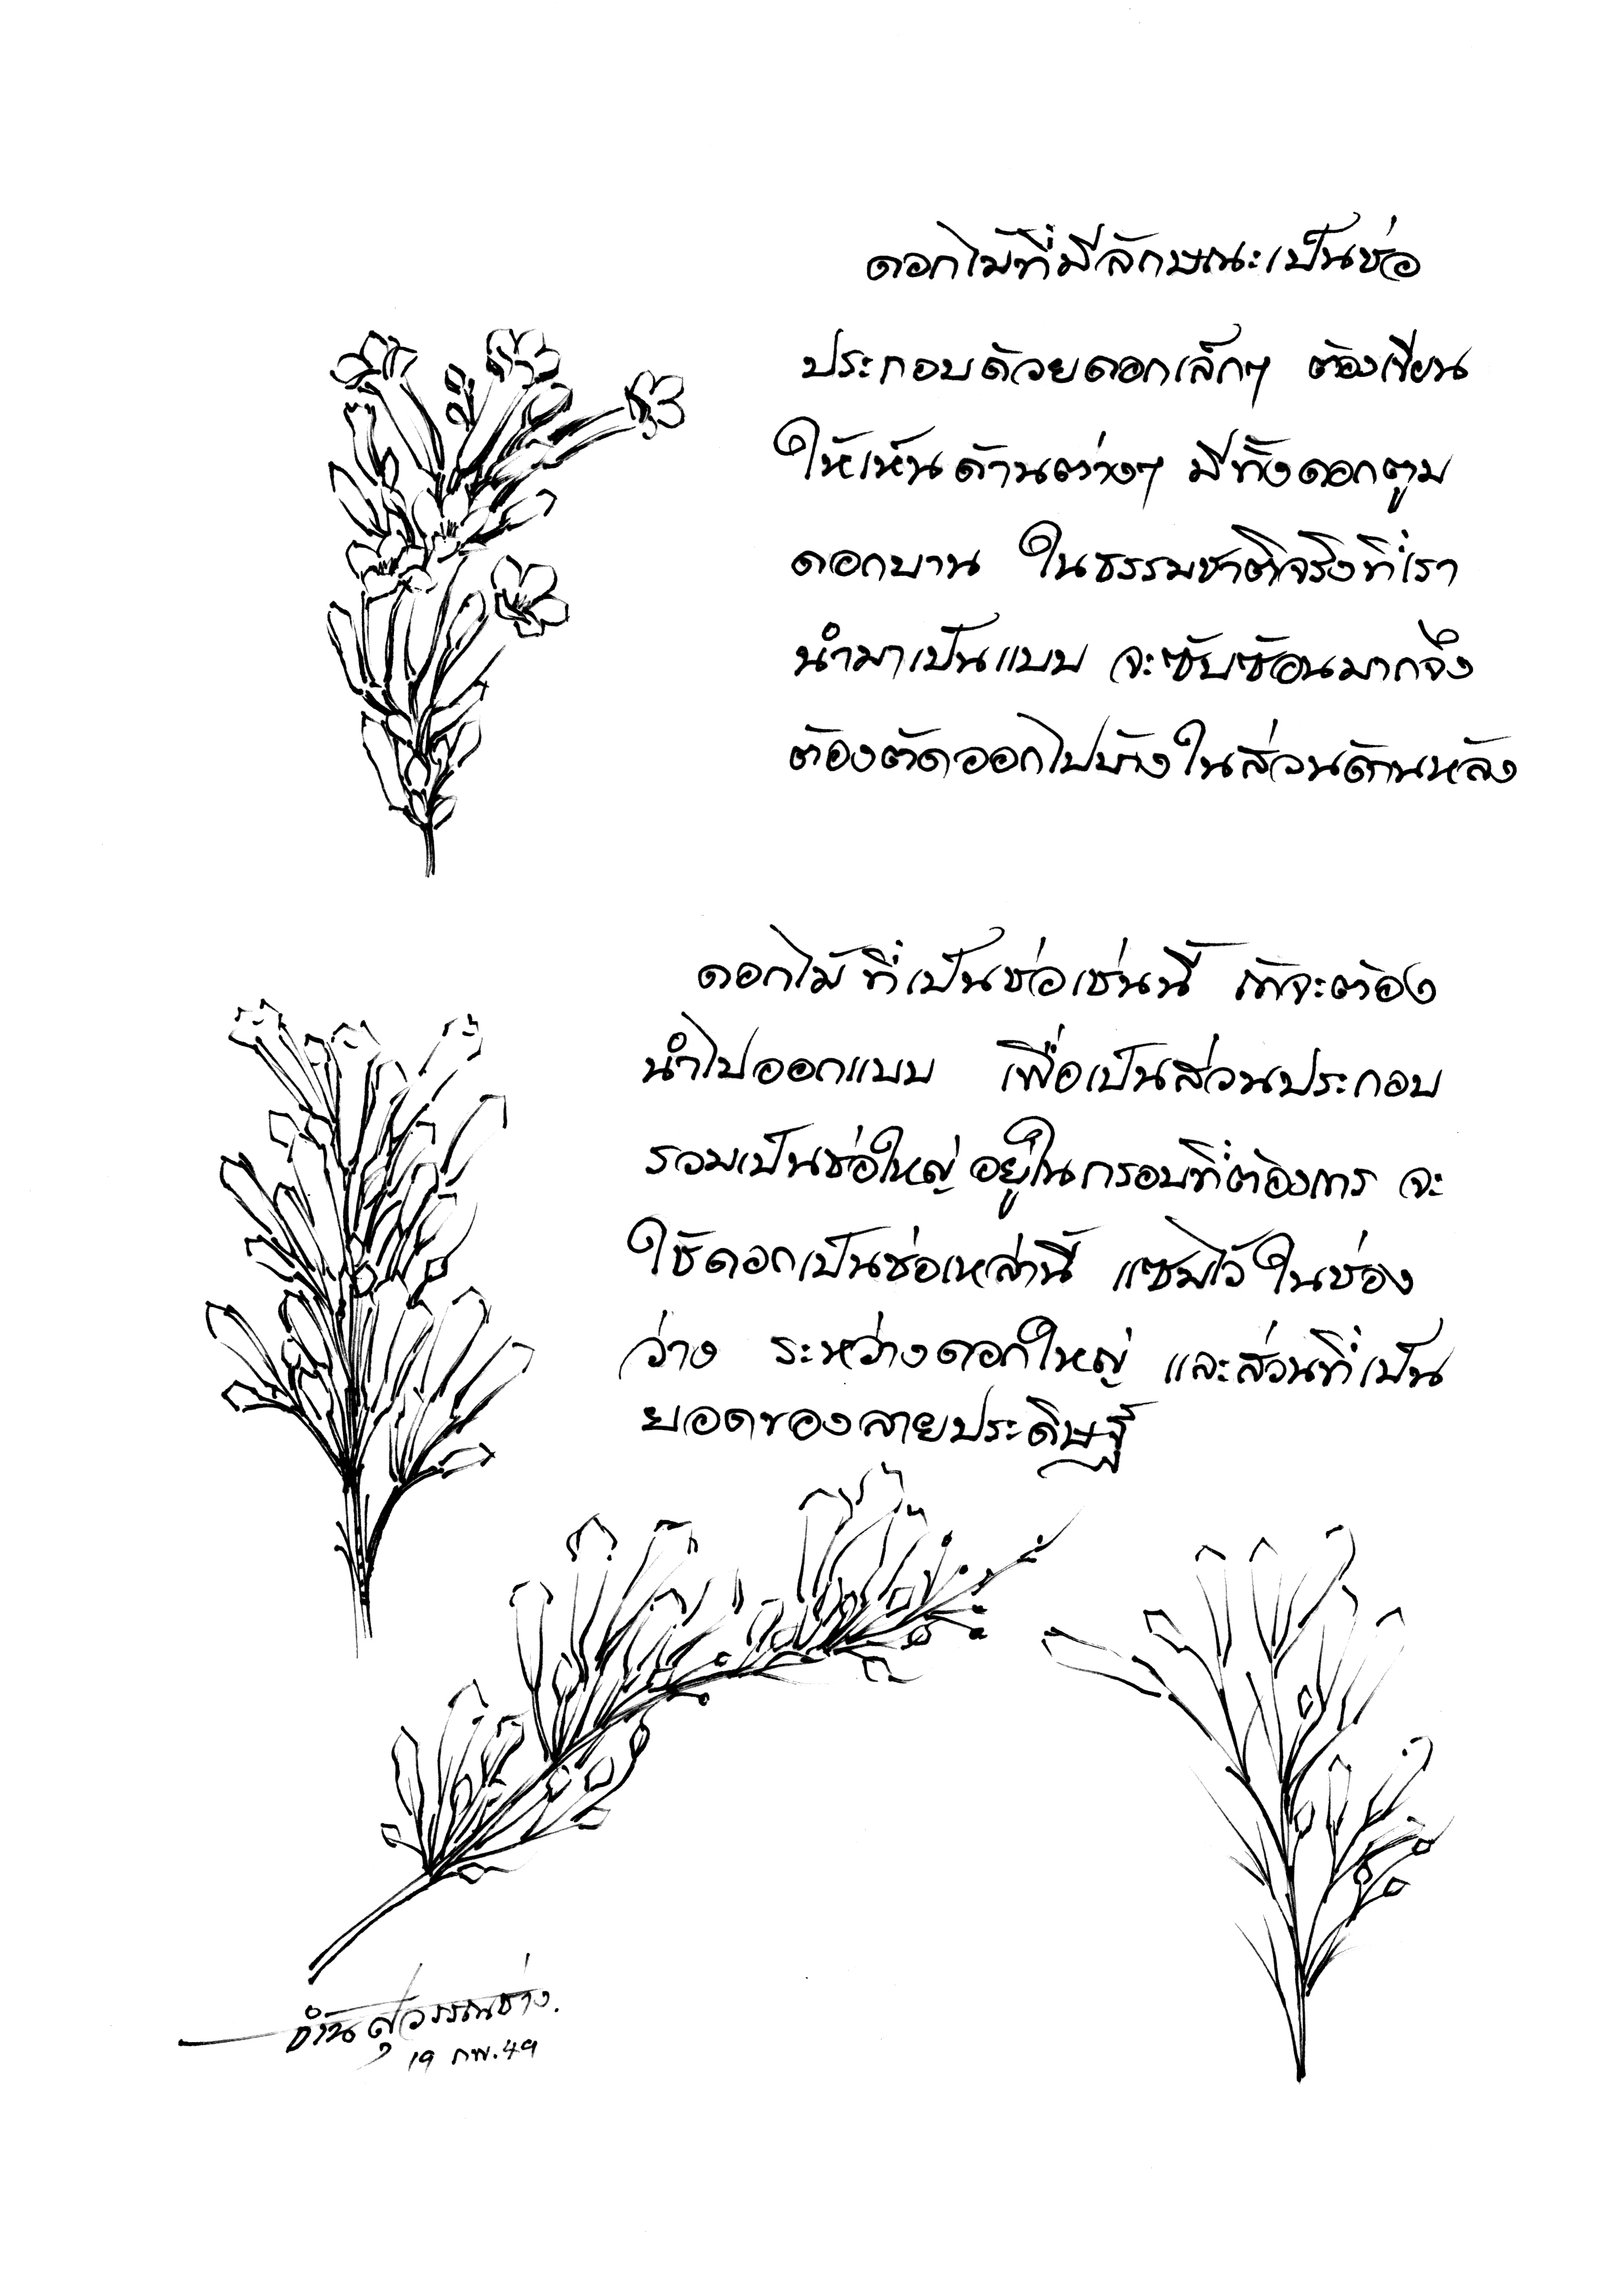 ดอกไม้ที่มีลักษณะเป็นช่อ
ประกอบด้วยดอกเล็กๆ ต้องเขียน
ให้เห็นด้านต่างๆ มีทั้งดอกตูม
ดอกบาน ในธรรมชาติจริงที่เรา
นำมาเป็นแบบ จะซับซ้อนมากจึง
ต้องตัดออกไปบ้างในส่วนด้านหลัง
ดอกไม้ที่เป็นช่อเช่นนี้ ถ้าจะต้อง
นำไปออกแบบ เพื่อเป็นส่วนประกอบ
รวมเป็นช่อใหญ่ อยู่ในกรอบที่ต้องการ จะ
ใช้ดอกเป็นช่อเหล่านี้ แซมไว้ในช่อง
ว่าง ระหว่างดอกใหญ่ และส่วนที่เป็น
ยอดของลายประดิษฐ์
สุวรรณช่าง.
19 กพ.49